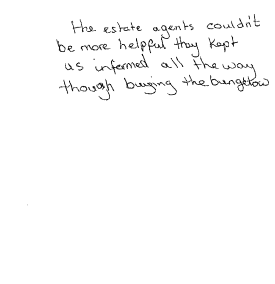 the estate agents couldn't
be more helpful they kept
us informed all the way
though buying the bungalow